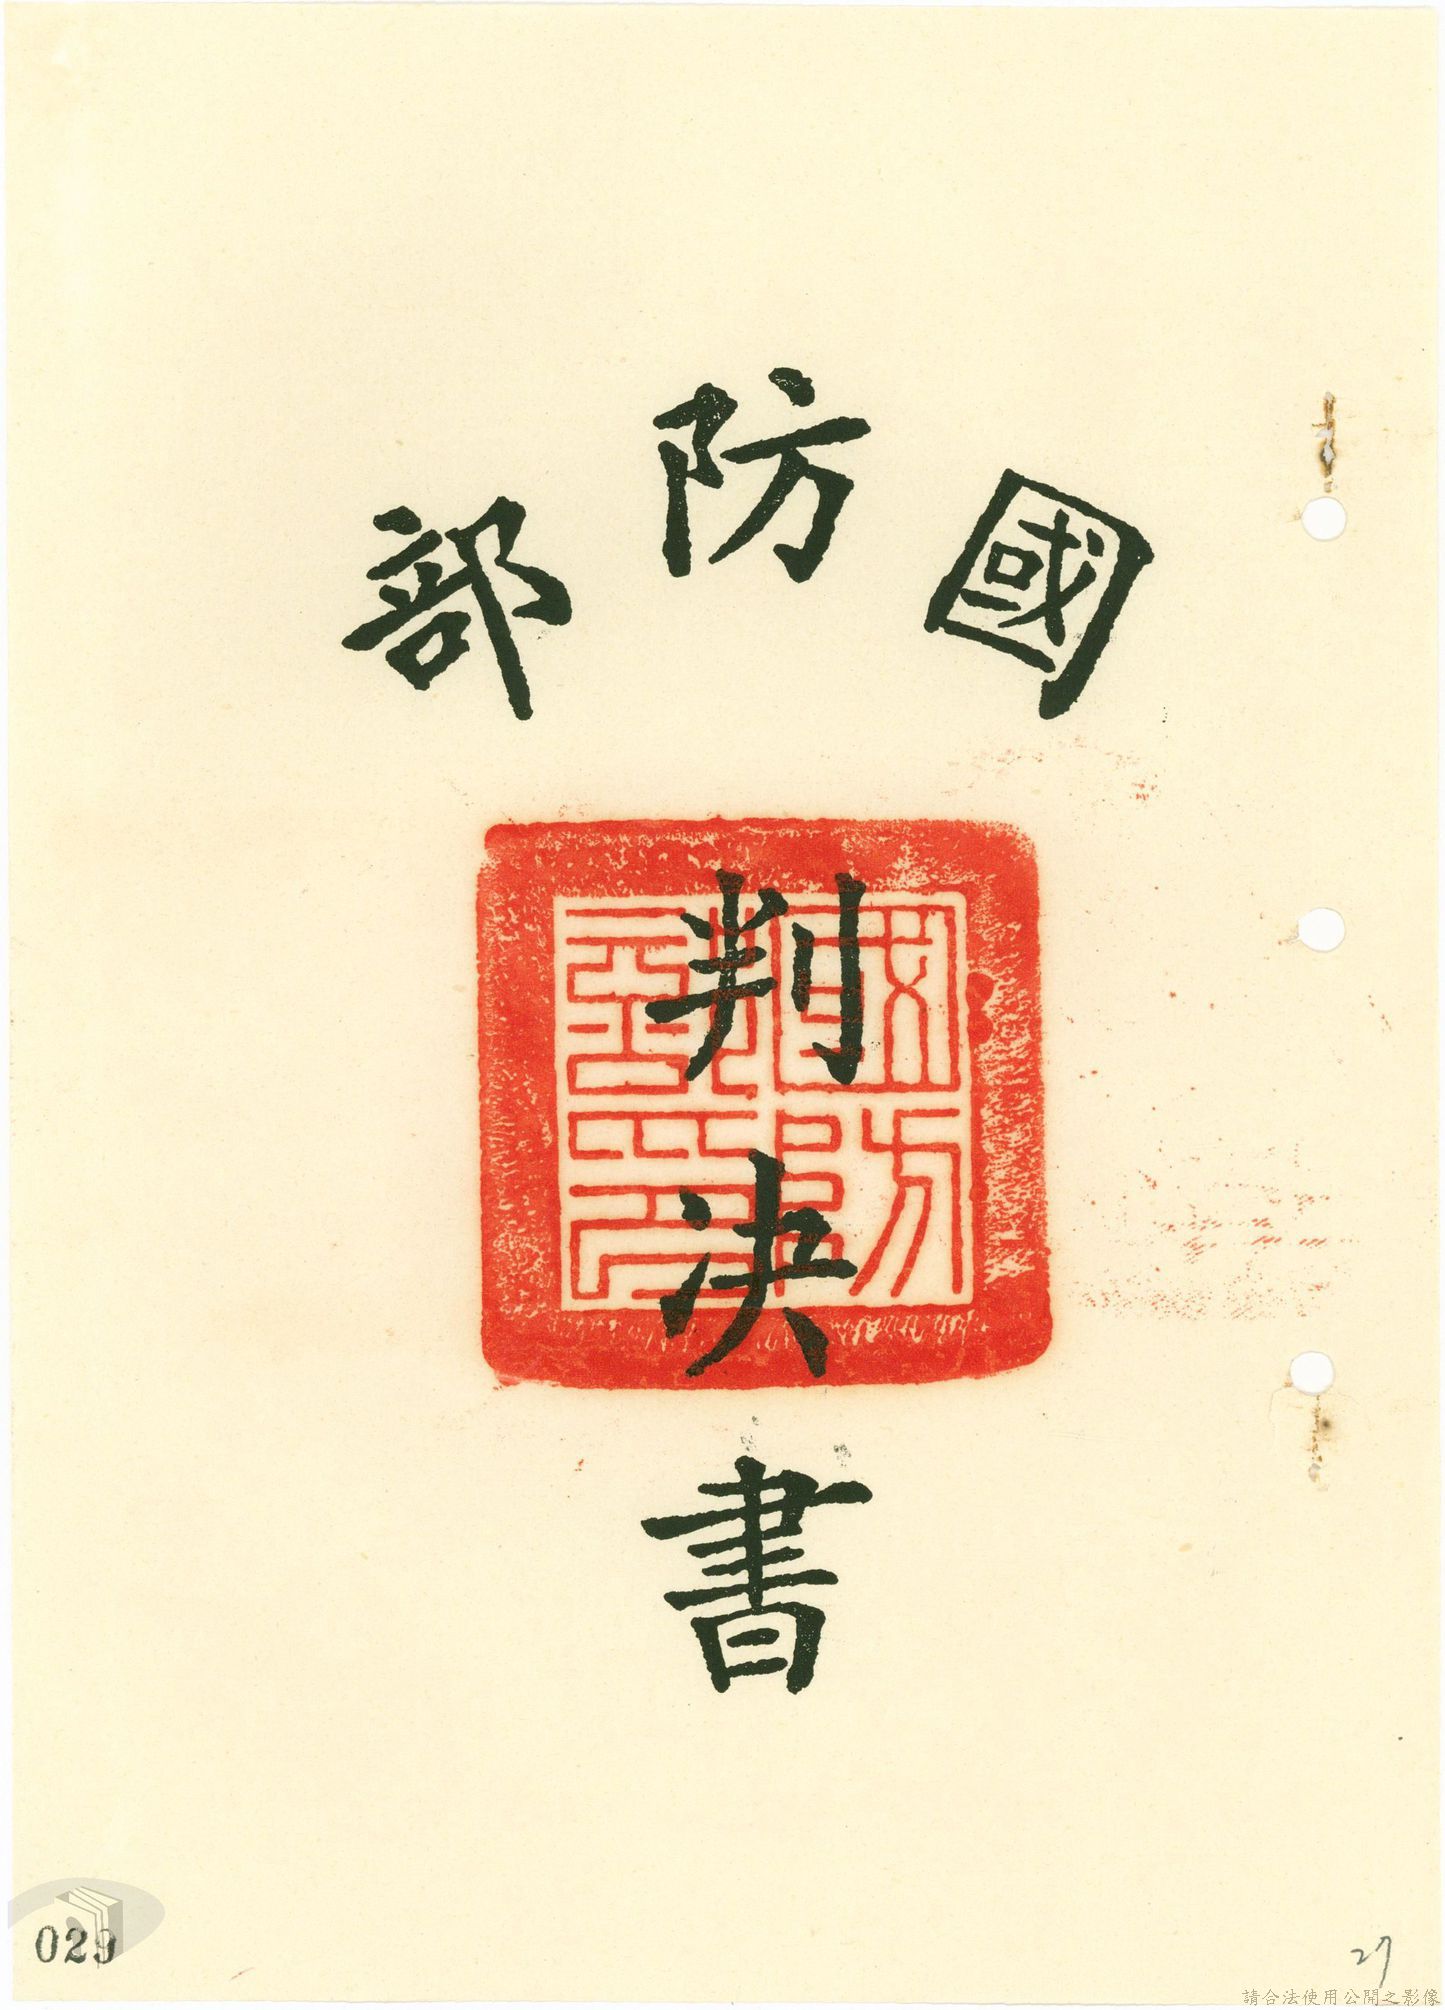 國防部
判決書
029
27
請合法使用公開之影像